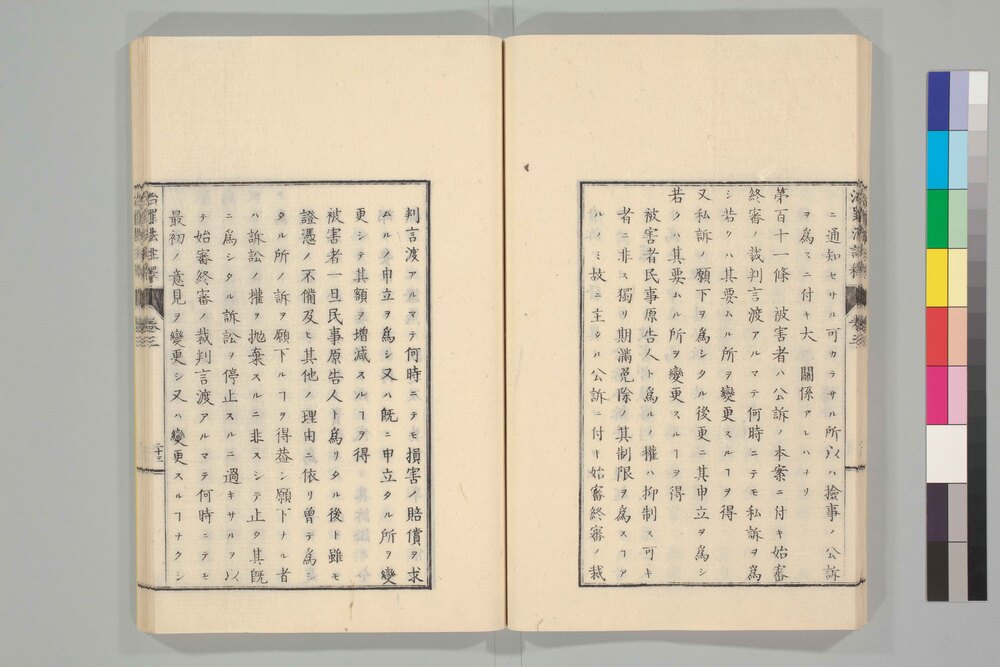 ニ通知セサル可カラサル所以ハ撿事ノ公訴
ヲ為スニ付キ大關係アレハナリ
第百十一條　被害者ハ公訴ノ本案ニ付キ始審
終審ノ裁判言渡アルマテ何時ニテモ私訴ヲ為
シ若クハ其要ムル所ヲ變更スルヿヲ得
又私訴ノ願下ヲ為シタル後更ニ其申立ヲ為シ
若クハ其要ムル所ヲ變更スルヿヲ得
被害者民事原告人ト為ルノ權ハ抑制ス可キ
者ニ非ス獨リ期滿免除ノ其制限ヲ為スヿア
ルノミ故ニ主タル公訴ニ付キ始審終審ノ裁
判言渡アルマテ何時ニテモ損害ノ賠償ヲ求
ムルノ申立ヲ為シ又ハ既ニ申立タル所ノ變
更シテ其額ヲ增減スルヿヲ得
被害者一旦民事原告人ト為リタル後ト雖モ
證憑ノ不備及ヒ其他ノ理由ニ依リ曾テ為シ
タル所ノ訴ヲ願下ルヿヲ得葢シ願下ナル者
ハ訴訟ノ權ヲ抛棄スルニ非スシテ止タ其既
ニ為シタル訴訟ヲ停止スルニ過キサルヲ以
テ始審終審ノ裁判言渡アルマテ何時ニテモ
最初ノ意見ヲ變更シ又ハ變更スルヿナクシ
治罪法註釋
卷三
二十三